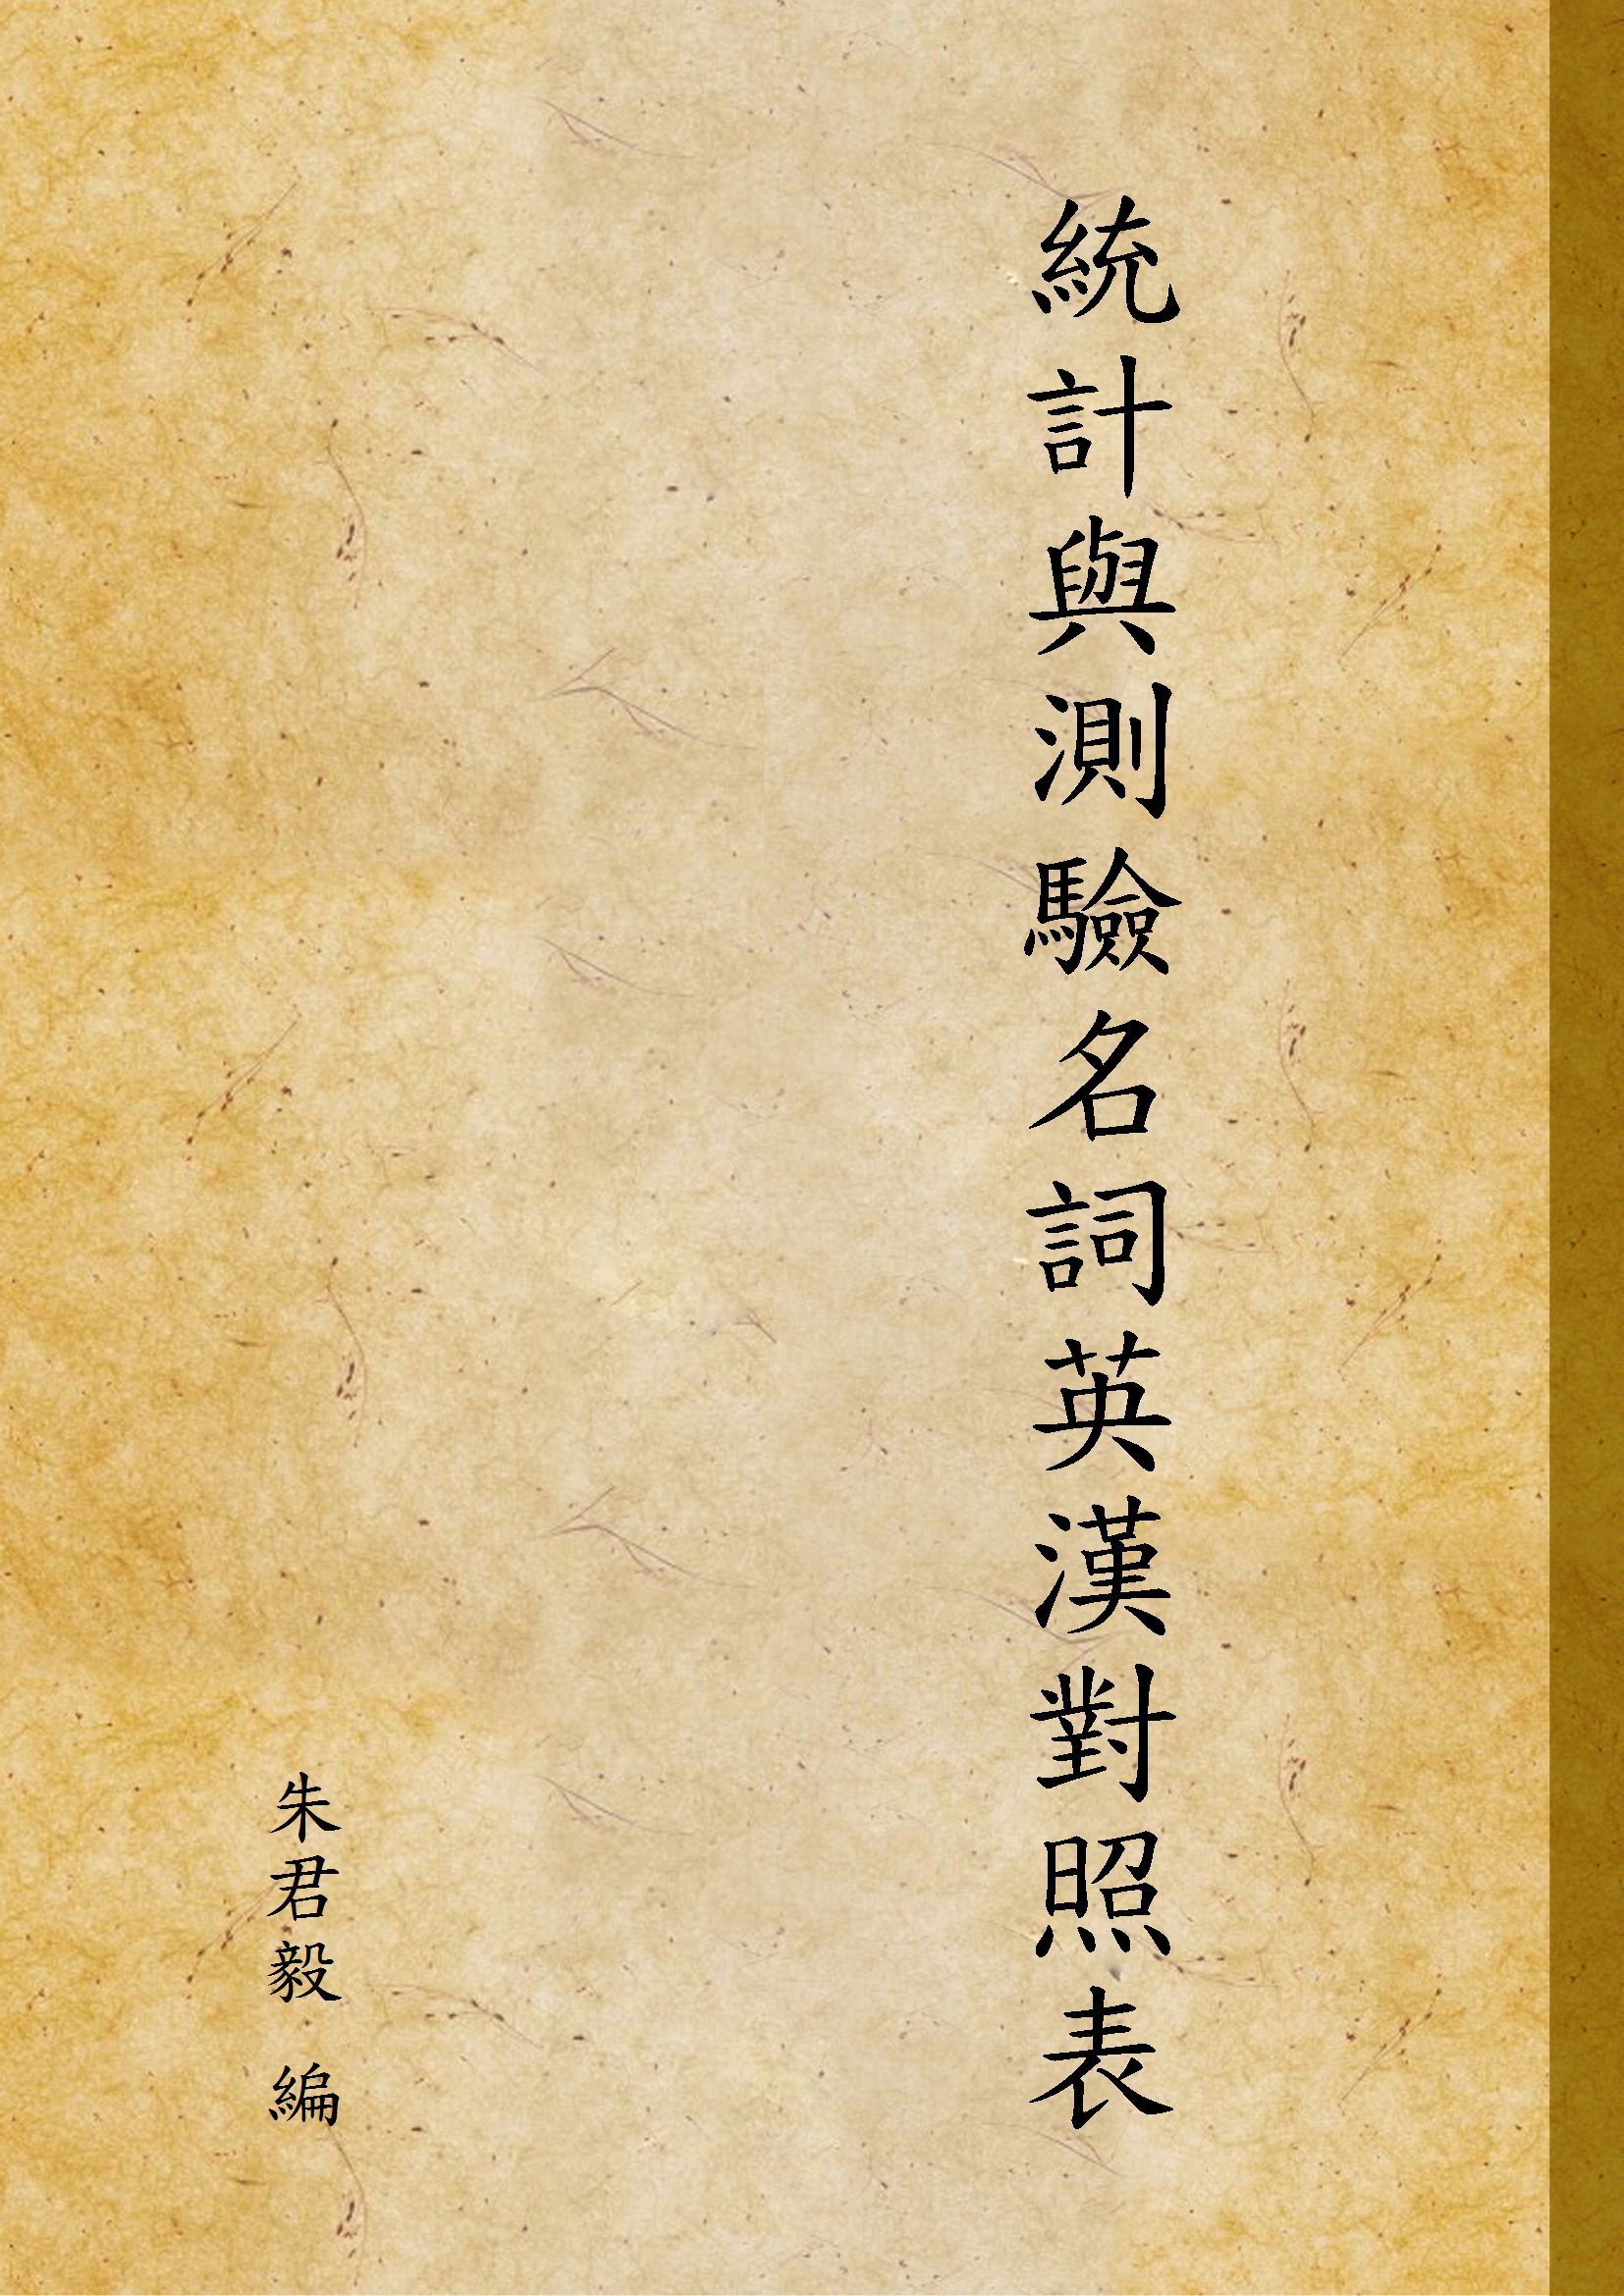 統計與測驗名詞英漢對照表
朱君毅 編